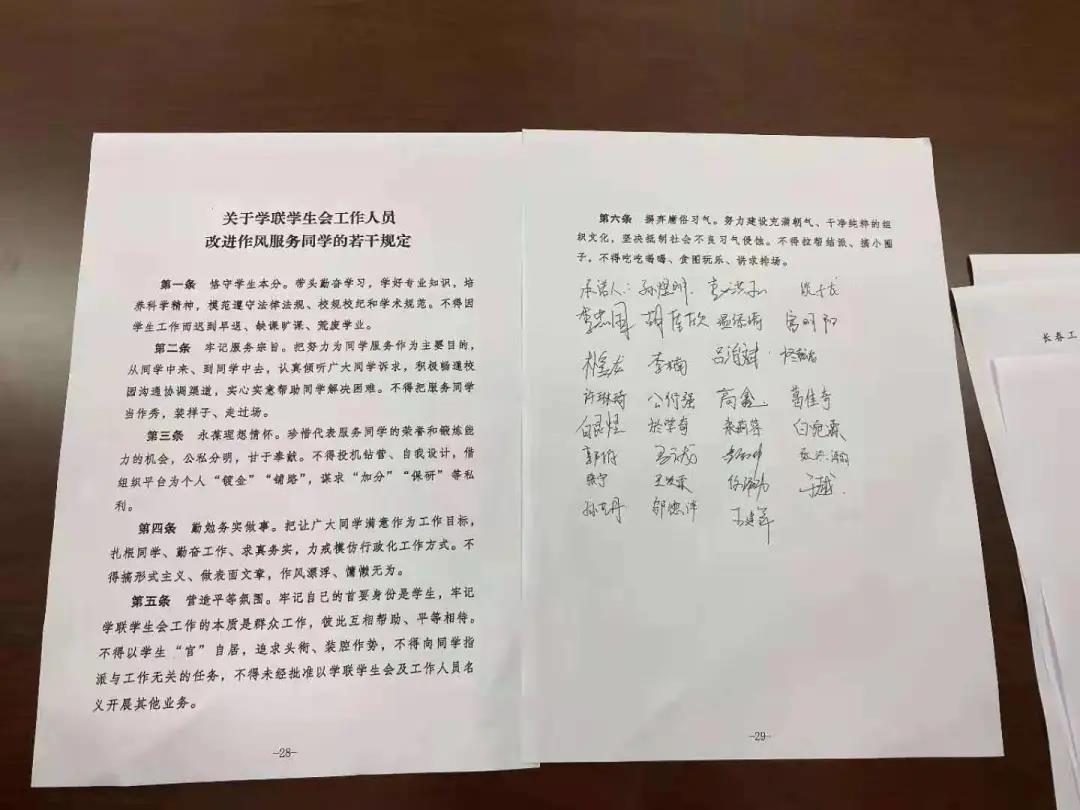 关于学联学生会工作人员
改进作风服务同学的若干规定
第一条 恪守学生本分。带头勤奋学习，学好专业知识、培
养科学精神，模范遵守法律法规、校规校纪和学术规范。不得因
学生工作而迟到早退、缺课旷课、荒废学业。
第二条 牢记服务宗旨。把努力为同学服务作为主要目的，
从同学中来、到同学中去，认真倾听广大同学诉求，积极畅通校
园沟通协调渠道，实心实意帮助同学解决困难。不得把服务同学
当作秀，装样子、走过场。
第三条 永葆理想情怀。珍惜代表服务同学的荣誉和锻炼能
力的机会，公私分明，甘于奉献。不得投机钻营、自我设计，借
组织平台为个人“镀金”“铺路”，谋求“加分”“保研”等私
利。
第四条 勤勉务实做事。把让广大同学满意作为工作目标，
扎根同学、勤奋工作、求真务实，力戒模仿行政化工作方式。不
得搞形式主义、做表面文章，作风漂浮、慵懒无为。
第五条 营造平等氛围。牢记自己的首要身份是学生，牢记
学联学生会工作的本质是群众工作，彼此互相帮助、平等相待。
不得以学生“官”自居，追求头衔、装腔作势，不得向同学指
派与工作无关的任务，不得未经批准以学联学生会及工作人员名
义开展其他业务。
-28-
第六条 摒弃庸俗习气。努力建设充满朝气、干净纯粹的组
织文化，坚决抵制社会不良习气侵蚀。不得拉帮结派、搞小圈
子，不得吃吃喝喝、贪图玩乐、讲求排场。
承诺人：
李忠国 胡佳欣
李楠 吕海斌
许琳琦 高鑫 葛佳奇
白宛霖
郭伟
王建军
-29-
长春工